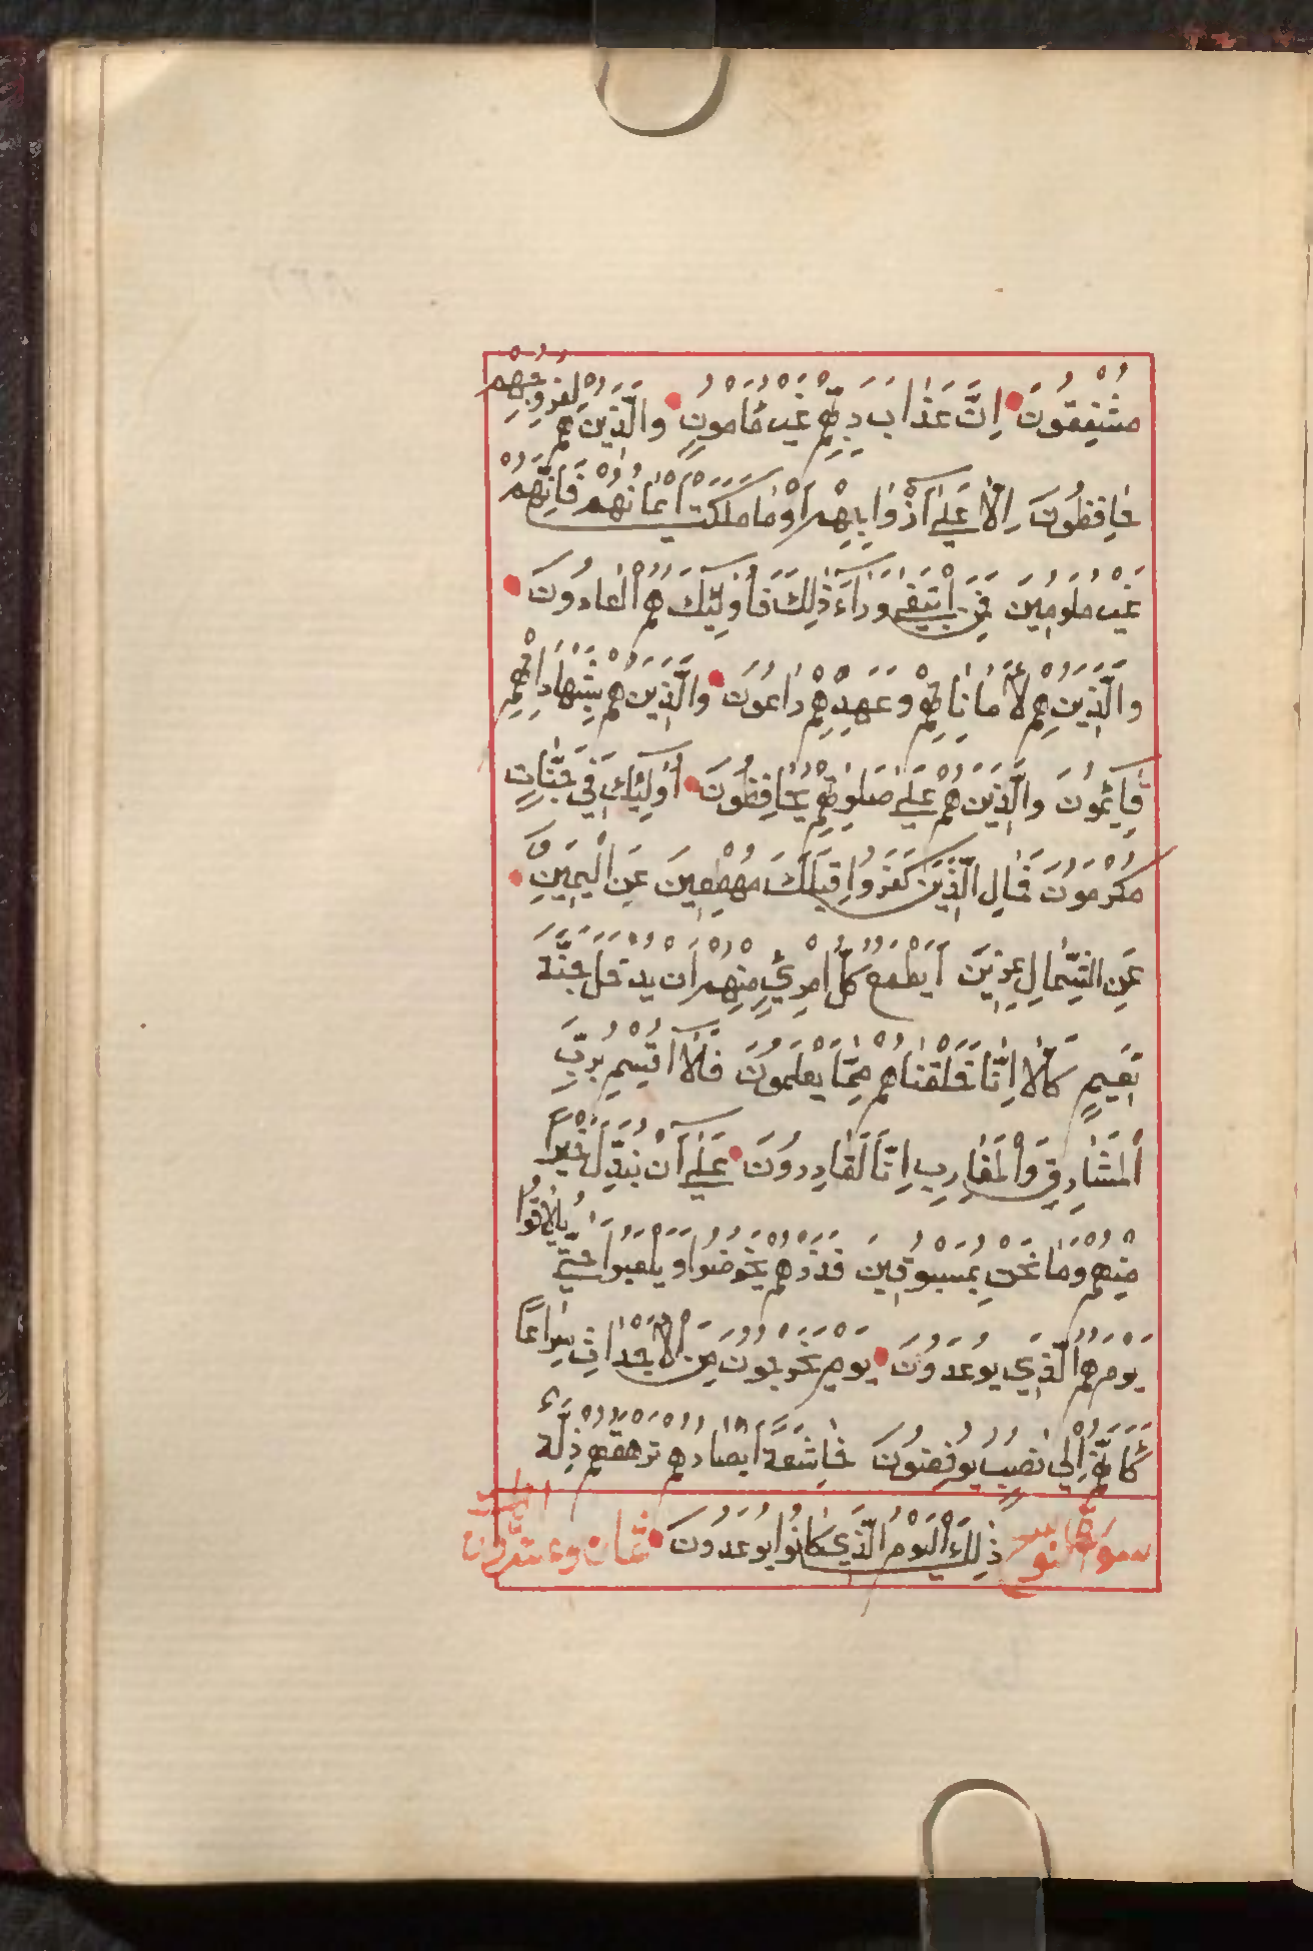 مُشْفِقُونَ اِنَّ عَذَابَ رَبِّهِمْ غَيْرُ مَأْمُونٍ وَالَّذِينَ هُمْ لِفُرُوجِهِمْ
حَافِظُونَ اِلَّا عَلٰى اَزْوَاجِهِمْ اَوْ مَا مَلَكَتْ اَيْمَانُهُمْ فَاِنَّهُمْ
غَيْرُ مَلُومِينَ فَمَنِ ابْتَغٰى وَرَاءَ ذٰلِكَ فَاُولٰئِكَ هُمُ الْعَادُونَ
وَالَّذِينَ هُمْ لِاَمَانَاتِهِمْ وَعَهْدِهِمْ رَاعُونَ وَالَّذِينَ هُمْ بِشَهَادَاتِهِمْ
قَائِمُونَ وَالَّذِينَ هُمْ عَلٰى صَلٰوتِهِمْ يُحَافِظُونَ اُولٰئِكَ فِي جَنَّاتٍ
مُكْرَمُونَ فَمَالِ الَّذِينَ كَفَرُوا قِبَلَكَ مُهْطِعِينَ عَنِ الْيَمِينِ وَ
عَنِ الشِّمَالِ عِزِينَ اَيَطْمَعُ كُلُّ امْرِئٍ مِنْهُمْ اَنْ يُدْخَلَ جَنَّةَ
نَعِيمٍ كَلَّا اِنَّا خَلَقْنَاهُمْ مِمَّا يَعْلَمُونَ فَلَا اُقْسِمُ بِرَبِّ
الْمَشَارِقِ وَالْمَغَارِبِ اِنَّا لَقَادِرُونَ عَلٰى اَنْ نُبَدِّلَ خَيْرًا
مِنْهُمْ وَمَا نَحْنُ بِمَسْبُوقِينَ فَذَرْهُمْ يَخُوضُوا وَيَلْعَبُوا حَتّٰى يُلَاقُوا
يَوْمَهُمُ الَّذِي يُوعَدُونَ يَوْمَ يَخْرُجُونَ مِنَ الْاَجْدَاثِ سِرَاعًا
كَاَنَّهُمْ اِلٰى نُصُبٍ يُوفِضُونَ خَاشِعَةً اَبْصَارُهُمْ تَرْهَقُهُمْ ذِلَّةٌ
سورة نوح ذٰلِكَ الْيَوْمُ الَّذِي كَانُوا يُوعَدُونَ ثمان وعشرون